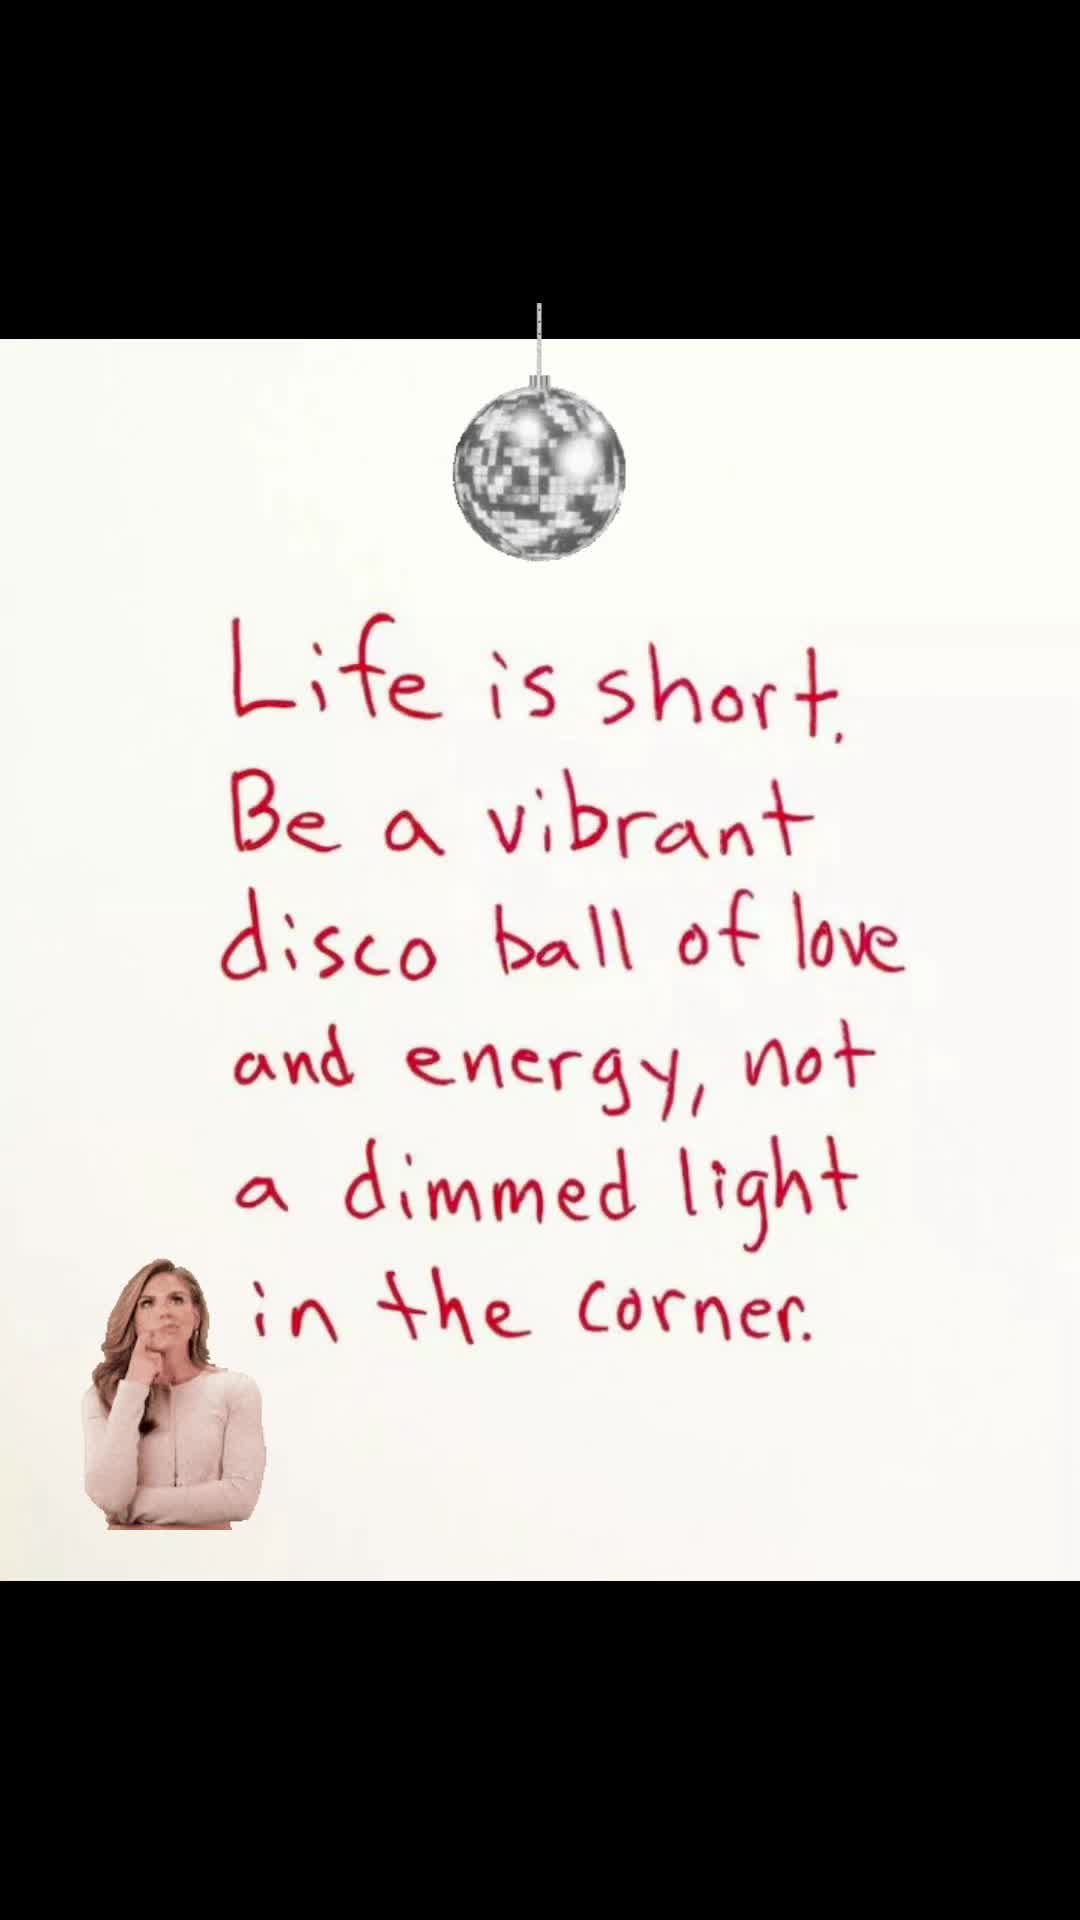 Life is short.
Be a vibrant
disco ball of love
and energy, not
a dimmed light
in the corner.